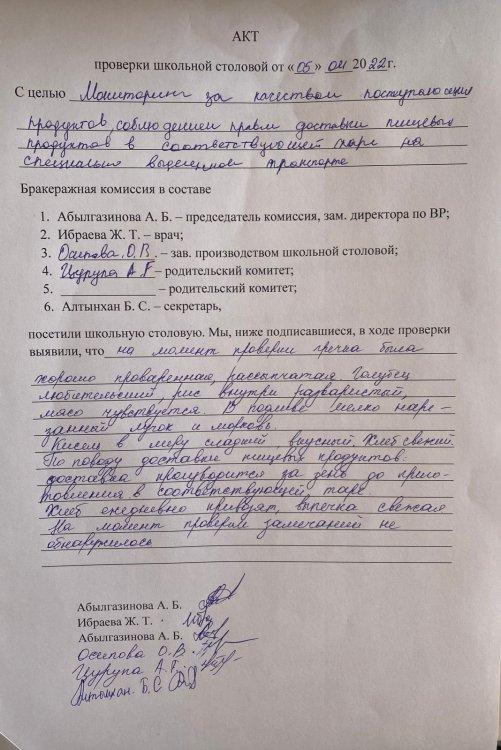 АКТ
проверки школьной столовой от «05» 04 2022 г.
С целью Мониторинг за качеством поступающих
продуктов, соблюдением правил доставки пищевых
продуктов в соответствующей таре на
специально выделенном транспорте
Бракеражная комиссия в составе
1. Абылгазинова А. Б. – председатель комиссия, зам. директора по ВР;
2. Ибраева Ж. Т. – врач;
3. Осипова О.В. – зав. производством школьной столовой;
4. Цурупа А.Г – родительский комитет;
5. – родительский комитет;
6. Алтынхан Б. С. – секретарь,
посетили школьную столовую. Мы, ниже подписавшиеся, в ходе проверки
выявили, что на момент проверки гречка была
хорошо проваренная, рассыпчатая. Голубец
любительский, рис внутри разваристый,
мясо чувствуется. В подливе мелко наре-
занный лучок и морковь.
Кисель в меру сладкий, вкусный. Хлеб свежий.
По поводу доставки пищевых продуктов.
доставка производится за день до приго-
товления в соответствующей таре.
Хлеб ежедневно привозят, выпечка свежая
На момент проверки замечаний не
обнаружилось
Абылгазинова А. Б.
Ибраева Ж. Т.
Абылгазинова А. Б.
Осипова О.В.
Цурупа А.Г.
Алтынхан. Б.С